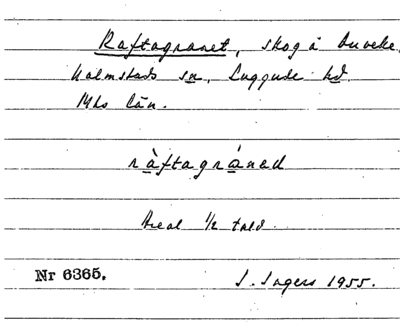 Raftagranet, skog å Duveke,
Halmstads sn, Luggude hd.
Mhs län.
ràftagràned
Areal ½ tnld.
Nr 6365.
I. Ingers 1955.